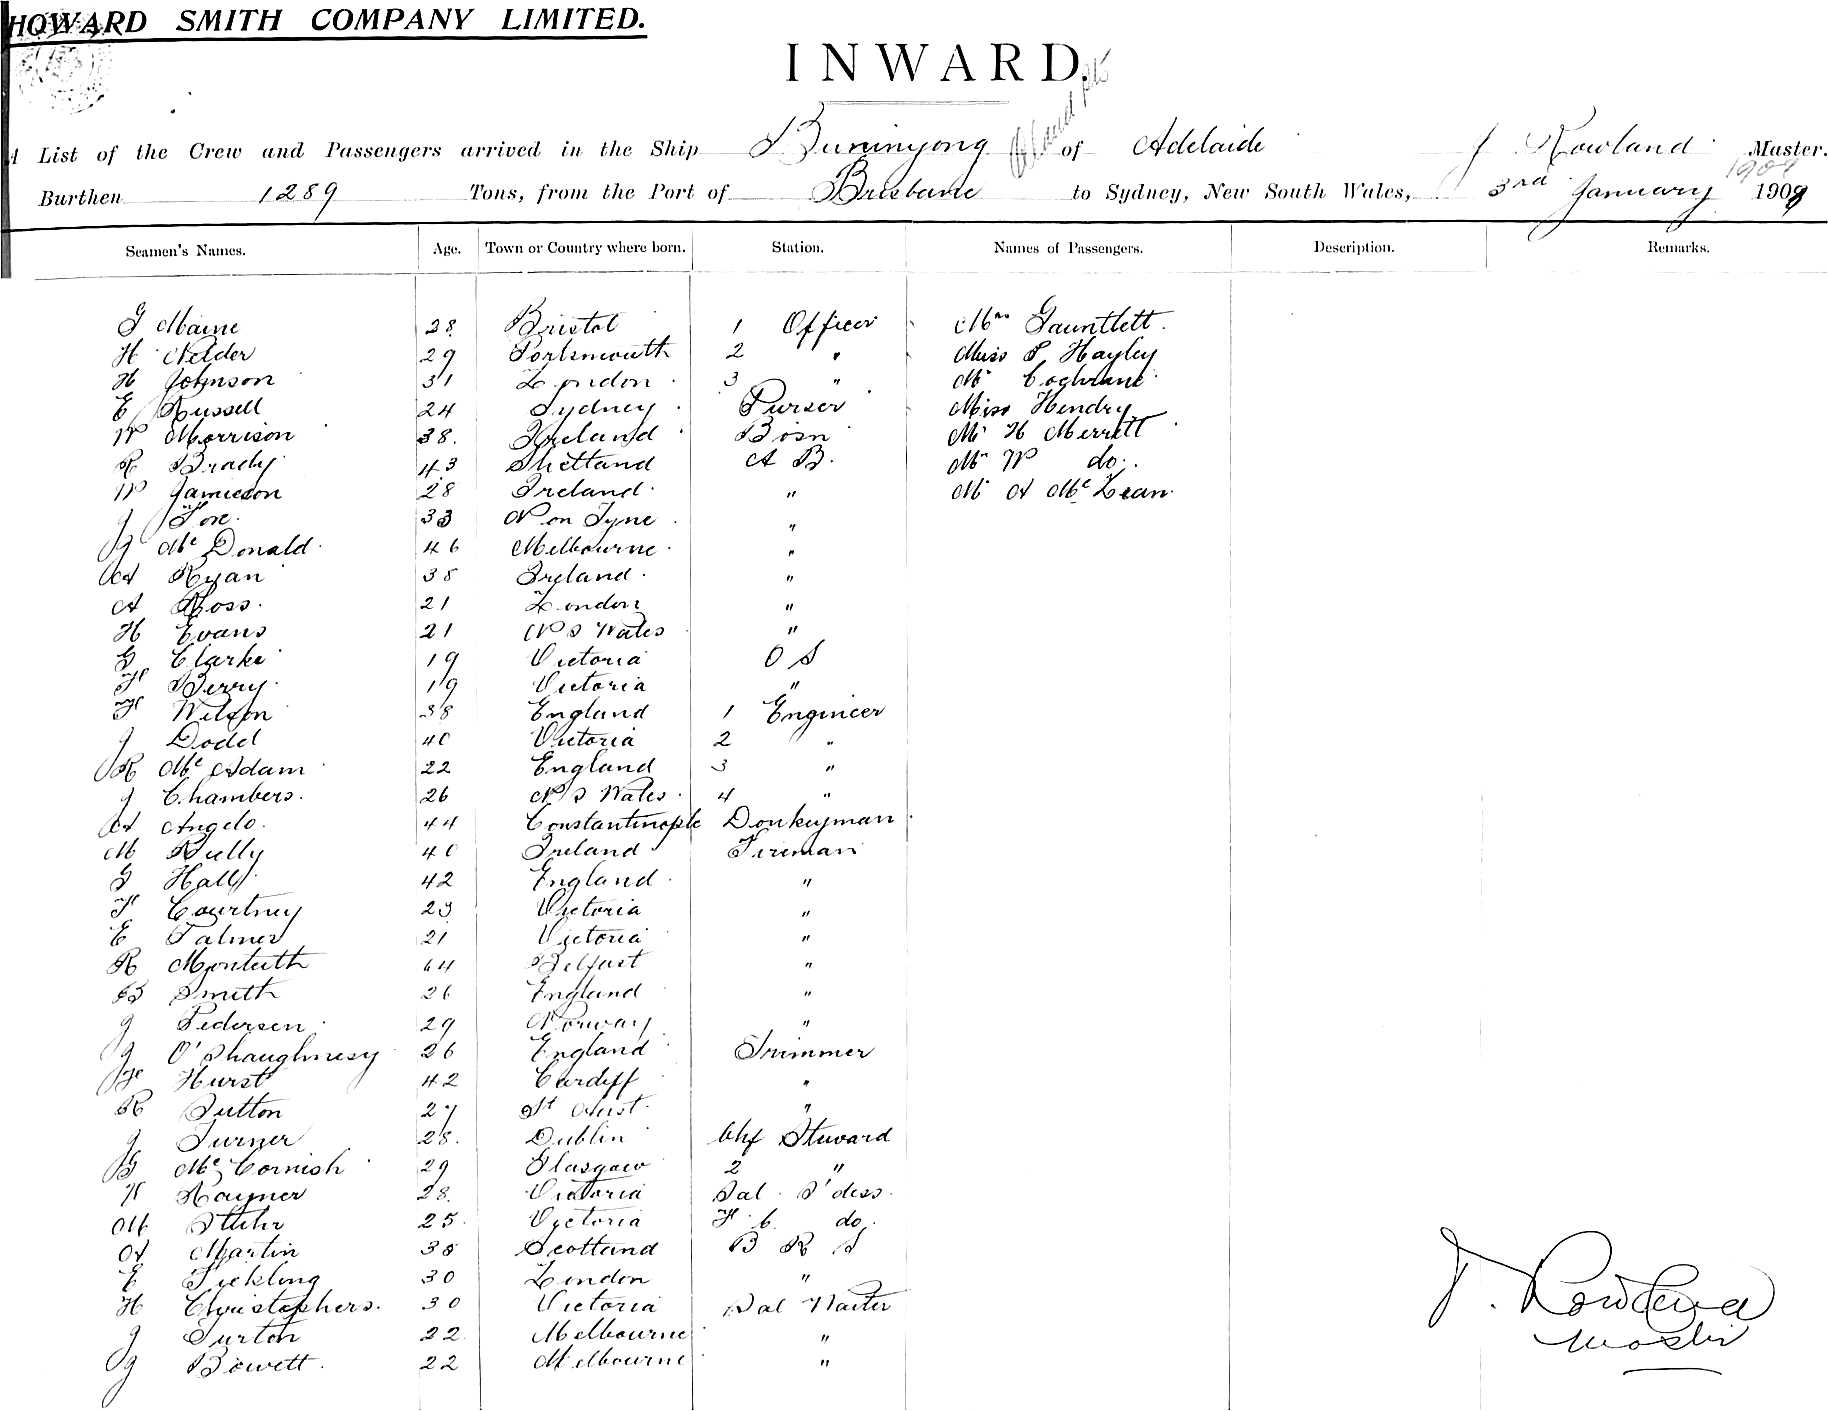 HOWARD SMITH COMPANY LIMITED.
INWARD.
A List of the Crew and Passengers arrived in the Ship Buninyong of Adelaide J Rowland Master.
Burthen 1289 Tons, from the Port of Brisbane to Sydney, New South Wales, 3rd January 1909 1909
Seamen's Names. Age. Town or Country where born. Station. Names of Passengers. Description. Remarks.
G Maine 28 Bristol 1 Officer Mrs Gauntlett
H Nelder 29 Portsmouth 2 " Miss P Hayley
H Johnson 31 London 3 " Mr Cochrane
E Russell 24 Sydney Purser Miss Hendry
W Morrison 38 Ireland Bosn Mr H Merrett
R Brady 43 Shetland A B. Mr W do.
W Jamieson 28 Ireland " Mr A McLean
J 33 N on Tyne "
J McDonald 46 Melbourne "
A Ryan 38 Ireland "
A Ross 21 London "
H Evans 21 N S Wales "
G Clarke 19 Victoria O S
F Berry 19 Victoria "
F Wilson 38 England 1 Engineer
J Dodd 40 Victoria 2 "
R McAdam 22 England 3 "
J Chambers 26 N S Wales 4 "
A Angelo 44 Constantinople Donkeyman
M 40 Ireland Fireman
G Hall 42 England "
F Courtney 23 Victoria "
E Palmer 21 Victoria "
R Monteith 64 Belfast "
B Smith 26 England "
J Pedersen 29 Norway "
J O'Shaughnesy 26 England Trimmer
F Hurst 42 Cardiff "
R Sutton 27 St "
J Turner 28 Dublin Chf Steward
G McCornish 29 Glasgow 2 "
H Rayner 28 Victoria Sal S'dess
M Stuhr 25 Victoria F. C. do.
A Martin 38 Scotland B R S
E Tickling 30 London "
H Christophers 30 Victoria Sal Waiter
J Turton 22 Melbourne "
J Bowett 22 Melbourne "
J. Rowland
Master